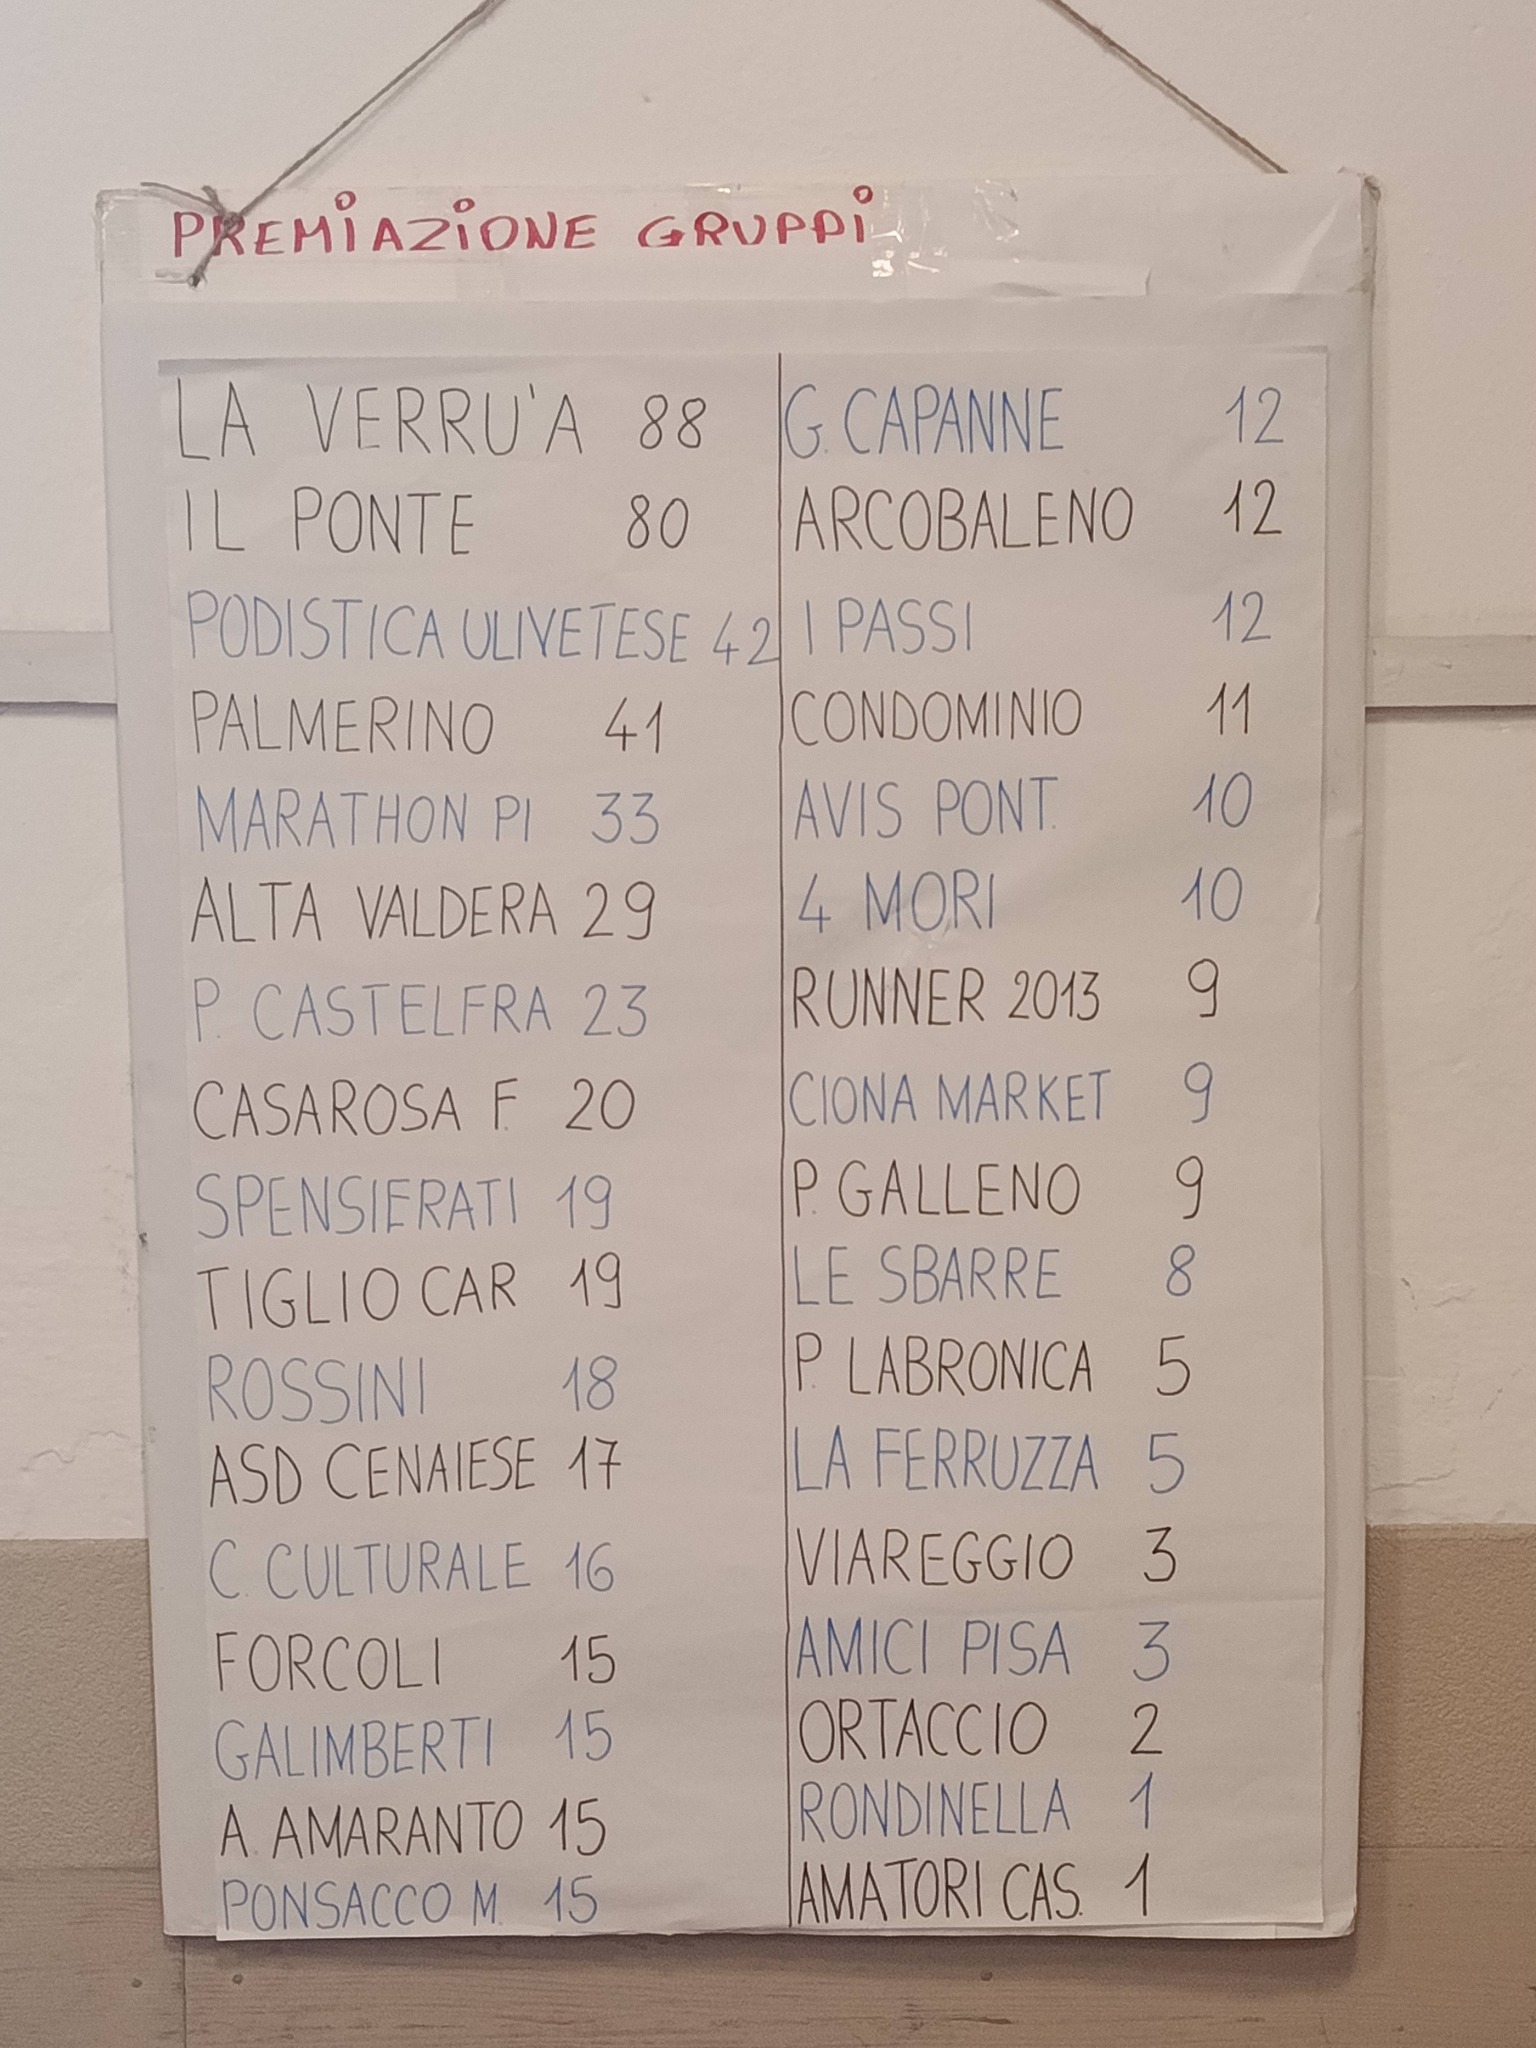 PREMIAZIONE GRUPPI
LA VERRU'A 88
IL PONTE 80
PODISTICA ULIVETESE 42
PALMERINO 41
MARATHON PI 33
ALTA VALDERA 29
P. CASTELFRA 23
CASAROSA F. 20
SPENSIERATI 19
TIGLIO CAR 19
ROSSINI 18
ASD CENAIESE 17
C. CULTURALE 16
FORCOLI 15
GALIMBERTI 15
A. AMARANTO 15
PONSACCO M. 15
G. CAPANNE 12
ARCOBALENO 12
I PASSI 12
CONDOMINIO 11
AVIS PONT. 10
4 MORI 10
RUNNER 2013 9
CIONA MARKET 9
P. GALLENO 9
LE SBARRE 8
P. LABRONICA 5
LA FERRUZZA 5
VIAREGGIO 3
AMICI PISA 3
ORTACCIO 2
RONDINELLA 1
AMATORI CAS. 1